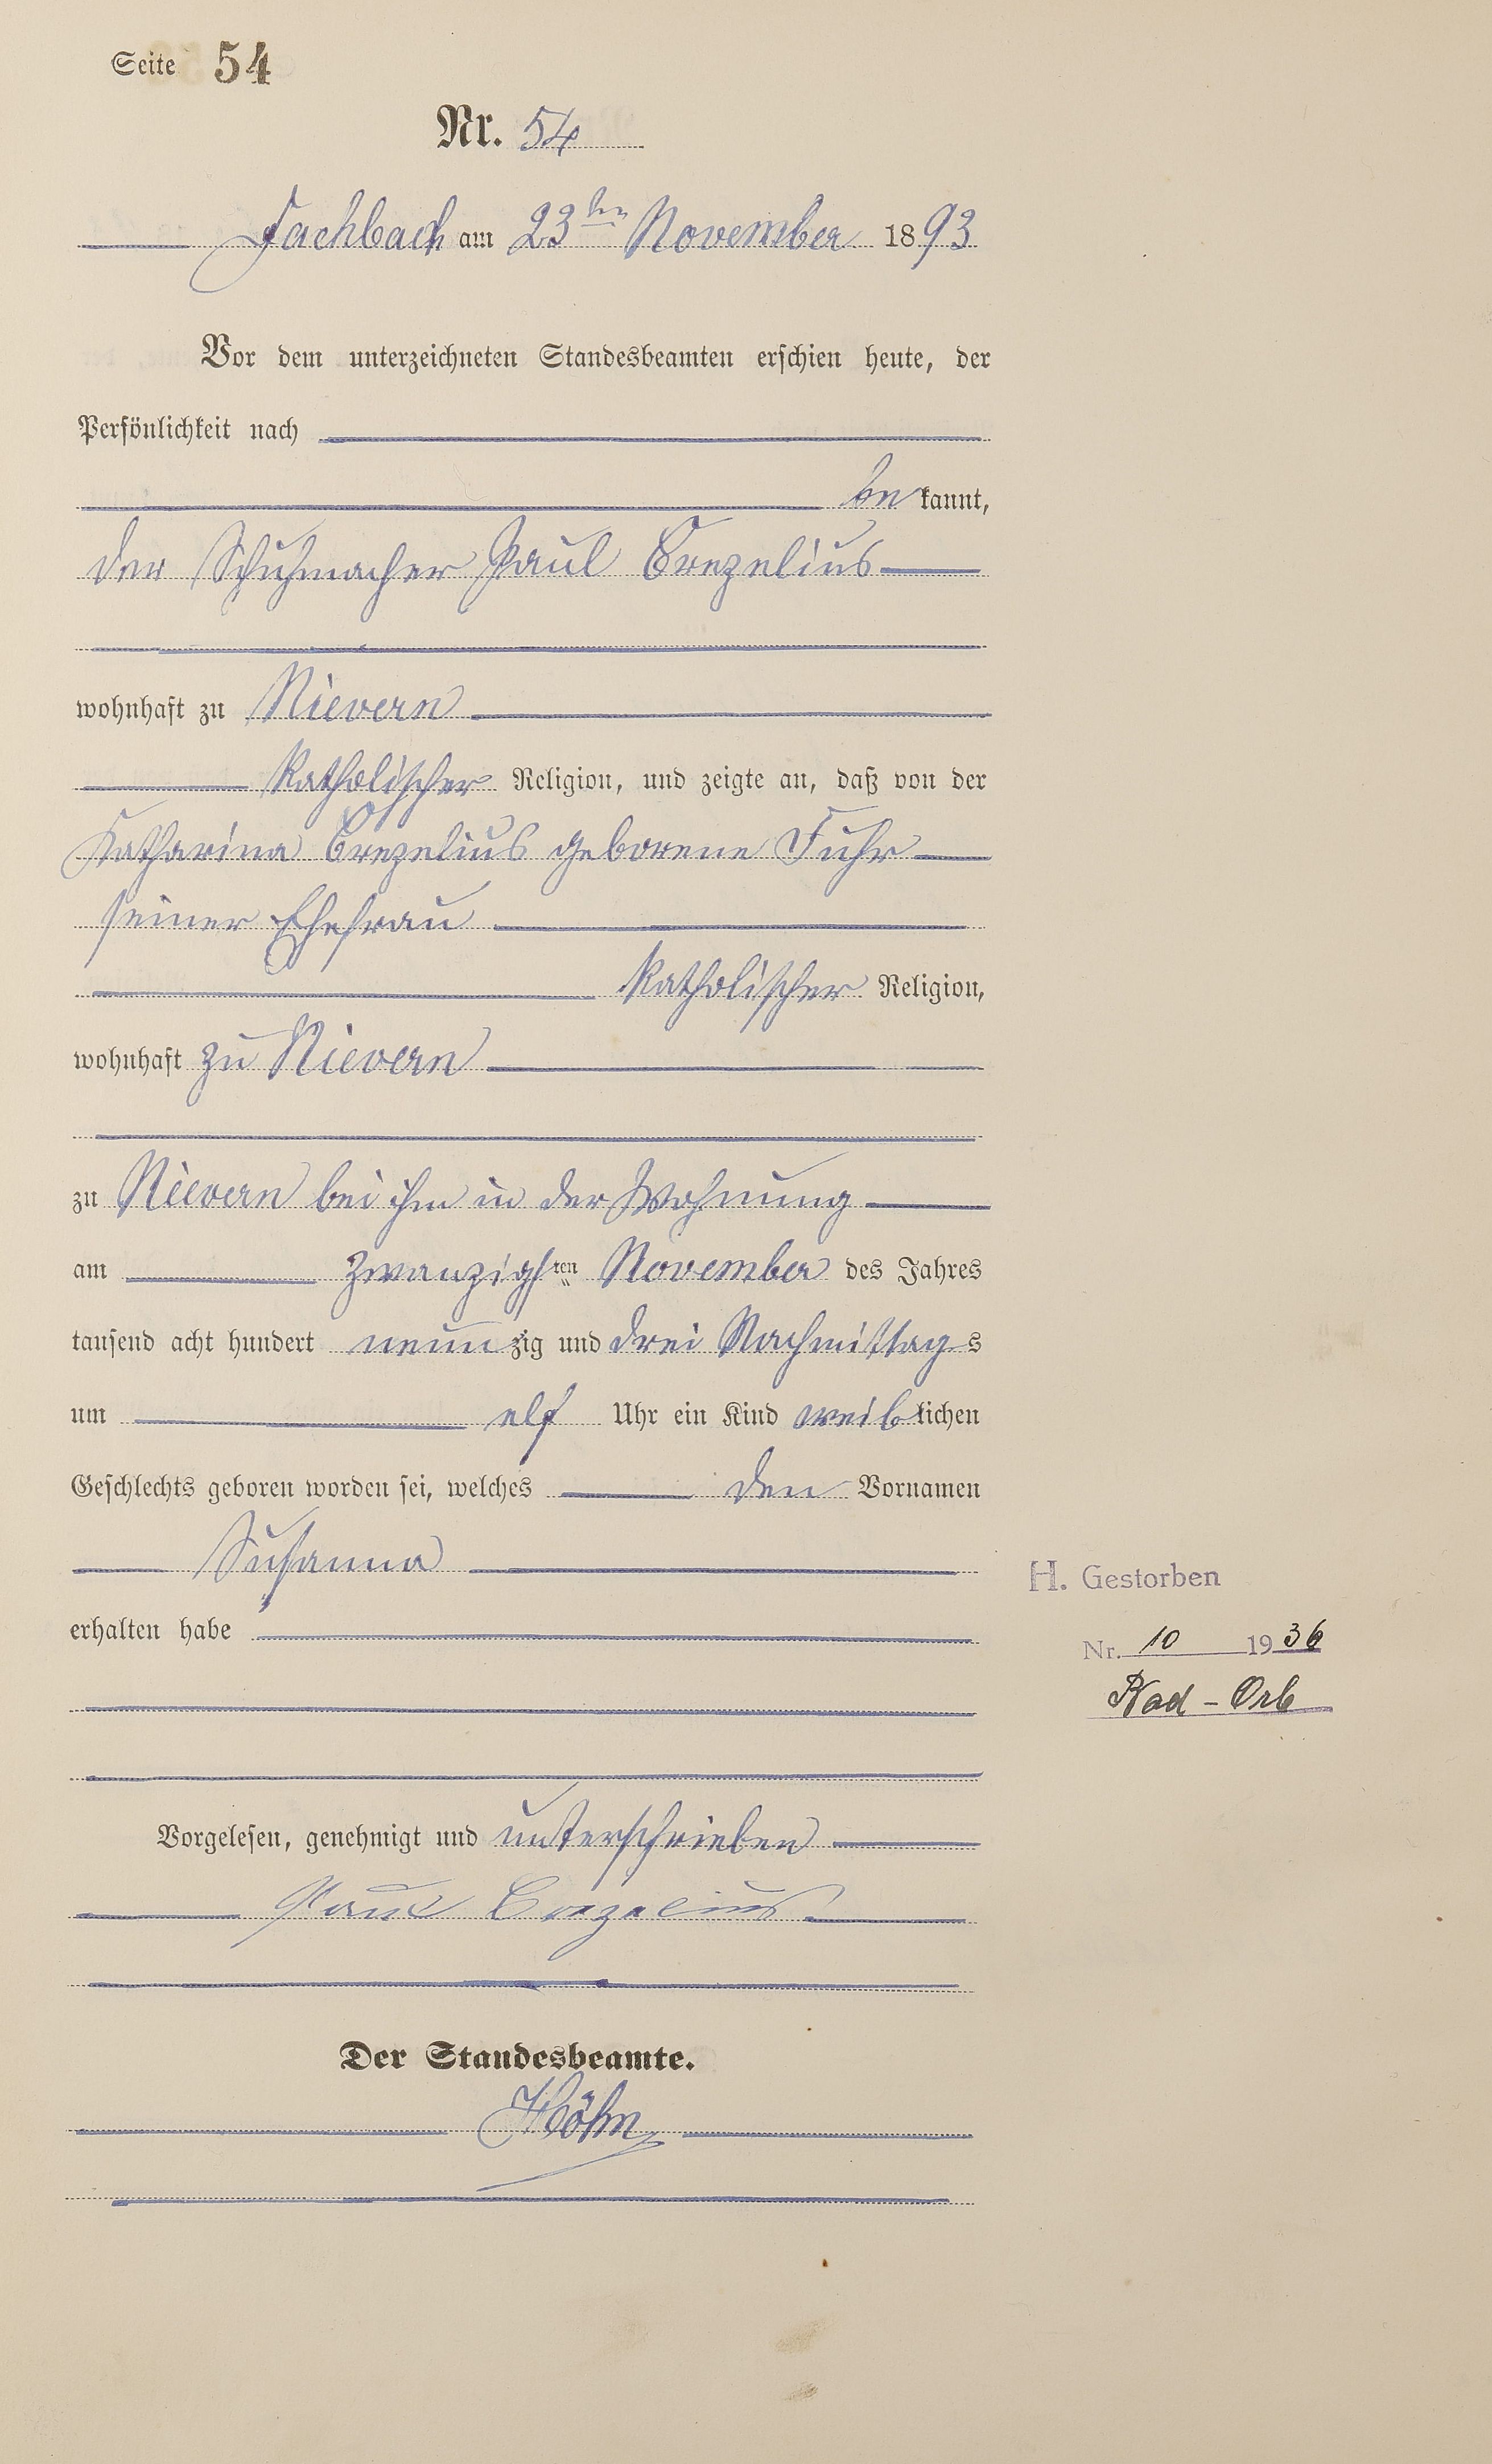 Seite 54
Nr. 54
Fachbach am 23ten November 1893
Vor dem unterzeichneten Standesbeamten erschien heute, der
Persönlichkeit nach
bekannt,
der Schuhmacher Paul Crezelius
wohnhaft zu Nievern
katholischer Religion, und zeigte an, daß von der
Katharina Crezelius geborene Fuhr
seiner Ehefrau
katholischer Religion,
wohnhaft zu Nievern
zu Nievern bei ihm in der Wohnung
am zwanzigsten November des Jahres
tausend acht hundert neunzig und drei Nachmittags
um elf Uhr ein Kind weiblichen
Geschlechts geboren worden sei, welches den Vornamen
Susanna
H. Gestorben
erhalten habe
Nr. 10 1936
Bad-Orb
Vorgelesen, genehmigt und unterschrieben
Paul Crezelius
Der Standesbeamte.
Höhn